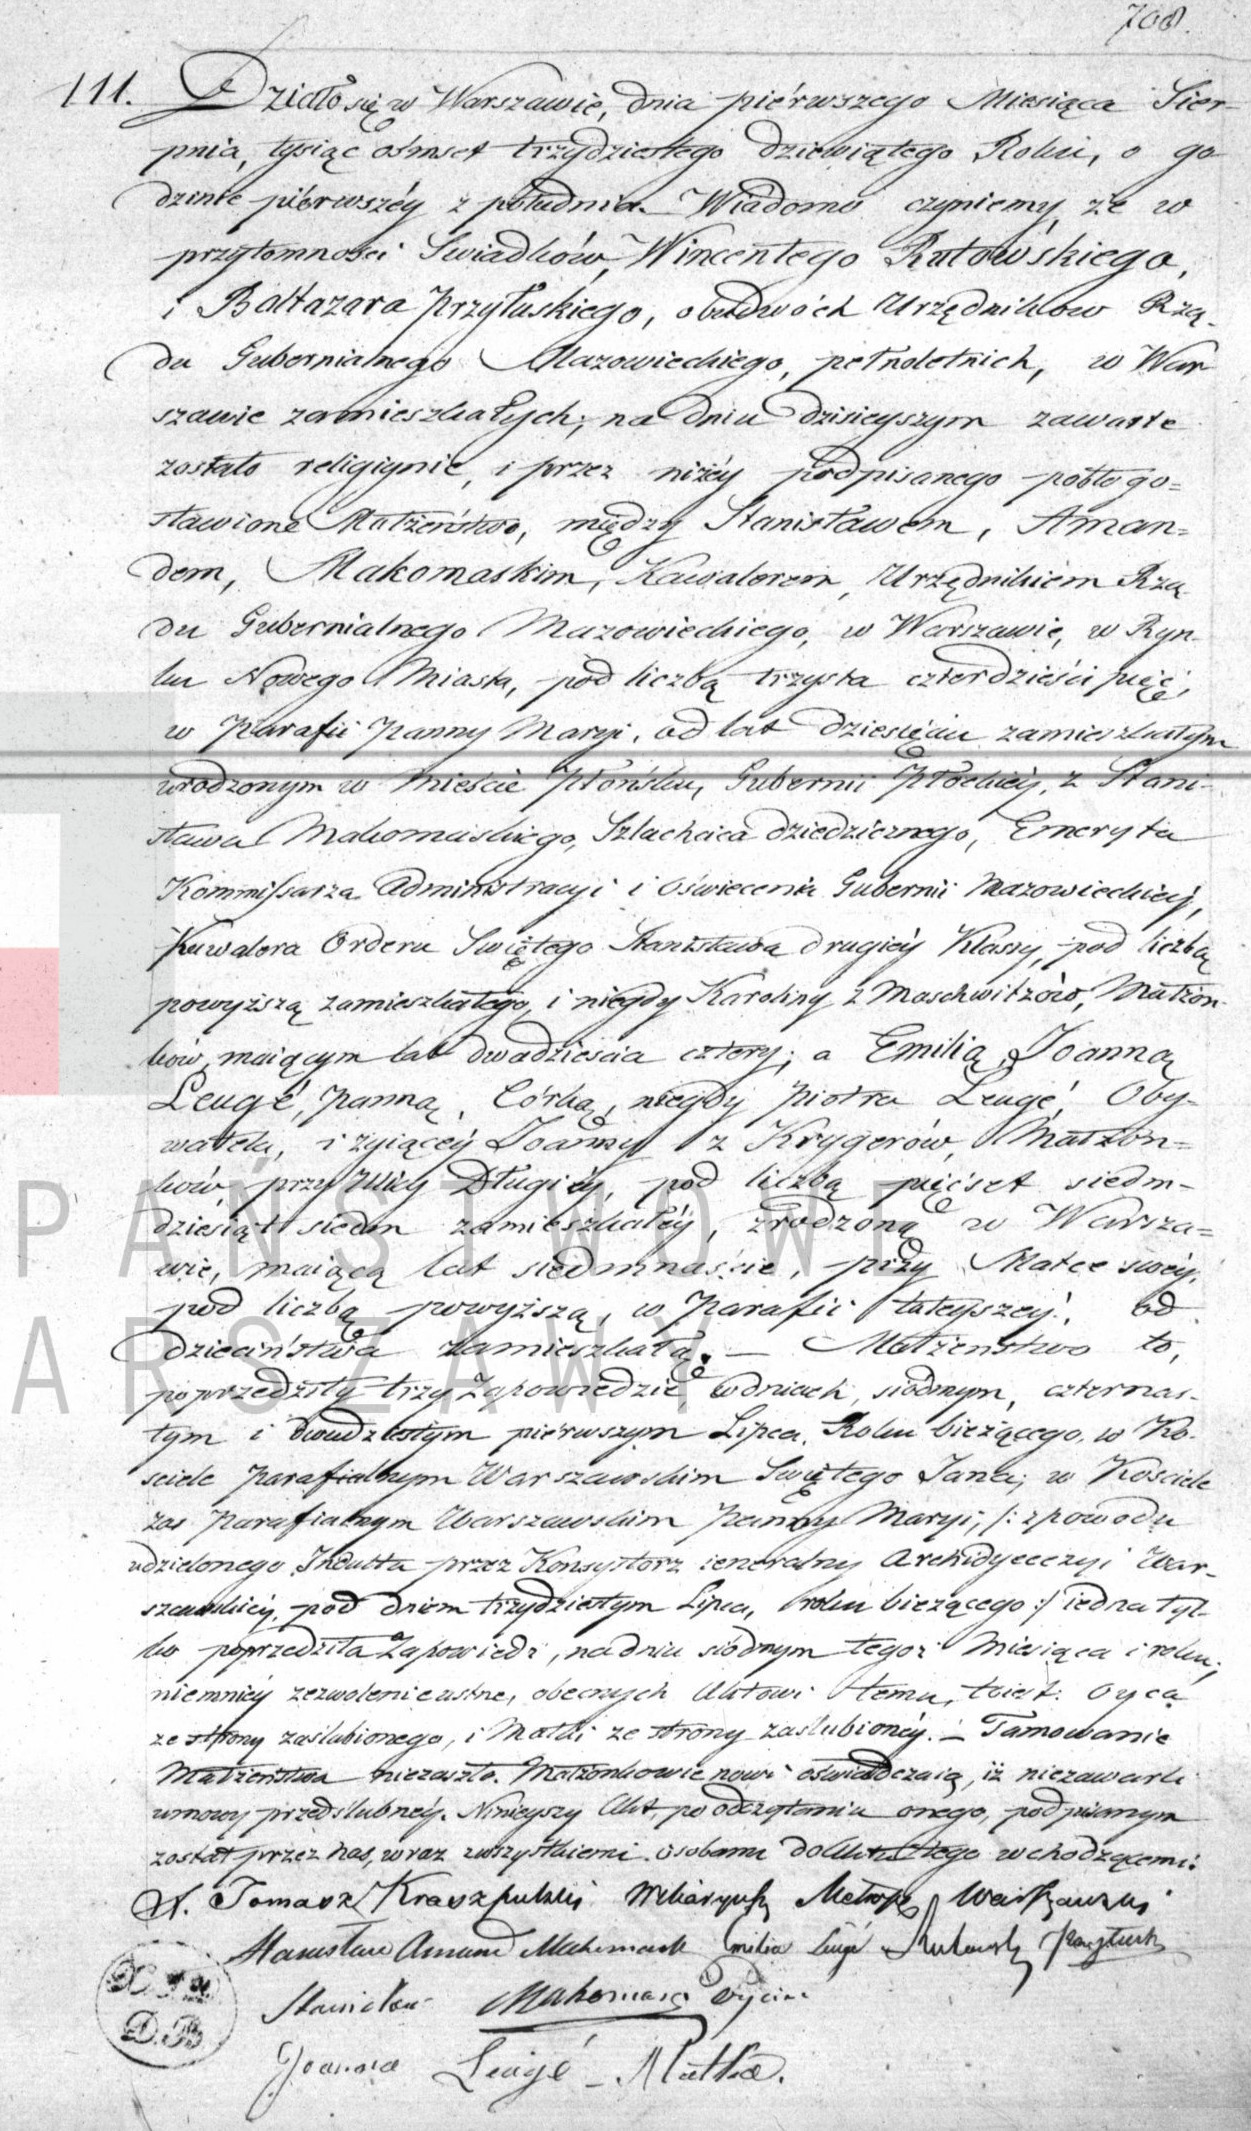 708.
111. Działo się w Warszawie, dnia piérwszego Miesiąca Sier-
pnia, tysiąc ośmset trzydziestego dziewiątego Roku, o go
dzinie piérwszéy z południa. Wiadomo czyniemy, że w
przytomności Swiadków, Wincentego Rutowskiego,
i Baltazara Przyłuskiego, obudwóch Urzędników Rzą-
du Gubernialnego Mazowieckiego, pełnoletnich, w War
szawie zamieszkałych; na dniu dzisieyszym zawarte
zostało religiynie, i przez niżéy podpisanego pobłogo=
sławione Małżeństwo, między Stanisławem, Aman=
dem, Makomaskim, Kawalerem, Urzędnikiem Rzą
du Gubernialnego Mazowieckiego, w Warszawie, w Ryn-
ku Nowego Miasta, pod liczbą trzysta czterdzieści pięć,
w Parafii Panny Maryi, od lat dziesięciu zamieszkałym
urodzonym w Mieście Płońsku, Gubernii Płockiéy, z Stani-
sława Makomaskiego, Szlachcica dziedzicznego, Emeryta
Kommissarza Administracyi i Oświecenia Gubernii Mazowieckiéy,
Kawalera Orderu Swiętego Stanisława drugiéy Klassy, pod liczbą
powyższą zamieszkałego, i niegdy Karoliny z Maschwitzów, Małżon-
ków, maiącym lat dwadzieścia cztery; a Emilią Joanną
Leugé, Panną, Córką, niegdy Piotra Leugé, Oby-
watela, i żyiącéy Joanny z Krygerów, Małżon=
ków, przy Ulicy Długiéy, pod liczbą pięćset siedm-
dziesiąt siedm zamieszkałéy, zrodzoną w Warsza=
wie, maiącą lat siedmnaście, przy Matce swéy,
pod liczbą powyższą, w Parafii tuteyszéy, od
dzieciństwa zamieszkałą. — Małżeństwo to,
poprzedziły trzy Zapowiedzie w dniach, siódmym, czternas-
tym i dwudziestym piérwszym Lipca, Roku bieżącego, w Ko-
ściele Parafialnym Warszawskim Swiętego Jana; w Kościele
zaś Parafialnym Warszawskim Panny Maryi, /: z powodu
udzielonego Indultu przez Konsystorz ieneralny Archidyecezyi War-
szawskiéy, pod dniem trzydziestym Lipca, roku bieżącego :/ iedna tyl-
ko poprzedziła Zapowiedź, na dniu siódmym tegoż Miesiąca i roku;
niemniéy zezwolenie ustne, obecnych Aktowi temu, to iest: Oyca
ze strony zaślubionego, i Matki ze strony zaślubionéy. — Tamowanie
Małżeństwa niezaszło. Małżonkowie nowi oświadczaią, iż niezawarli
umowy przedślubnéy. Ninieyszy Akt, po odczytaniu onego, podpisanym
został przez nas, wraz z wszystkiemi osobami do Aktu tego wchodzącemi.
X. Tomasz Wikaryusz Metrop. Warszawski
Stanisław Amand Makomaski Emilia Leugé Rutowski Przyłuski
Stanisław Makomaski Oyciec
Joanna Leugé – Matka.
PAŃSTWOWE
ARSZAWY